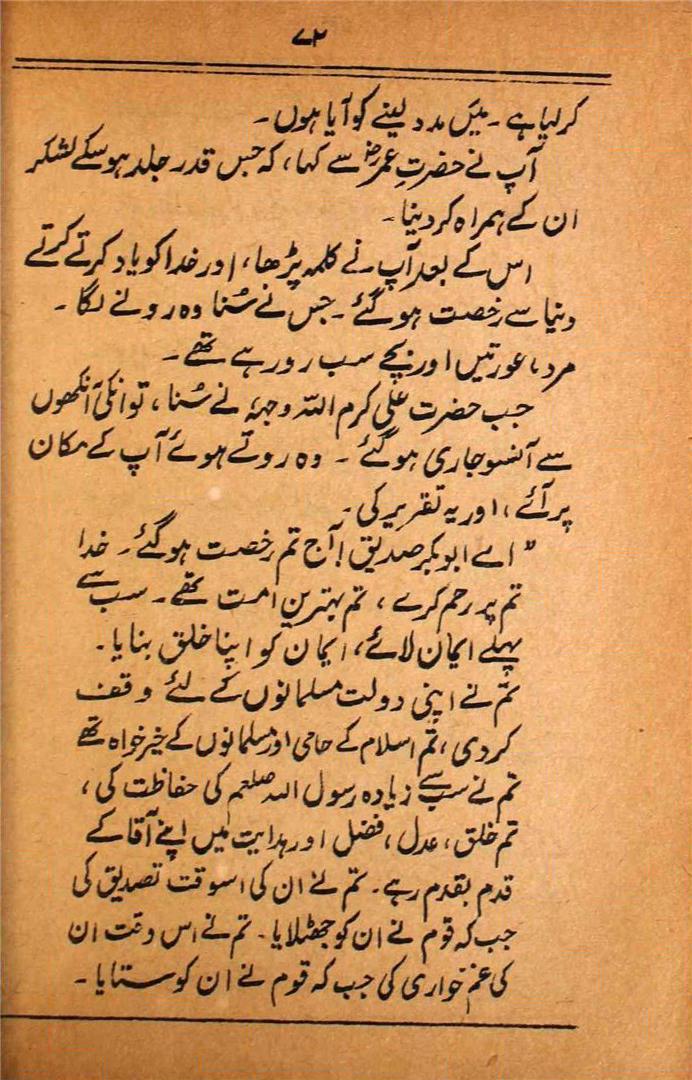 ۷۲
کرلیا ہے ۔ میں مدد لینے کو آیا ہوں۔
آپ نے حضرتِ عمرؓ سے کہا، کہ جس قدر جلد ہوسکے لشکر
ان کے ہمراہ کردینا۔
اس کے بعد آپ نے کلمہ پڑھا، اور خدا کو یاد کرتے کرتے
دنیا سے رخصت ہوگئے ۔ جس نے سُنا وہ رونے لگا ۔
مرد، عورتیں اور بچے سب رو رہے تھے ۔
جب حضرت علی کرم اللہ وجہہٗ نے سُنا، تو انکی آنکھوں
سے آنسو جاری ہوگئے ۔ وہ روتے ہوئے آپ کے مکان
پر آئے، اور یہ تقریر کی۔
" اے ابوبکر صدیق! آج تم رخصت ہوگئے ۔ خدا
تم پر رحم کرے، تم بہترین امت تھے ۔ سب سے
پہلے ایمان لائے، ایمان کو اپنا خلق بنایا۔
تم نے اپنی دولت مسلمانوں کے لئے وقف
کردی، تم اسلام کے حامی اور مسلمانوں کے خیرخواہ تھے
تم نے سب سے زیادہ رسول اللہ صلعم کی حفاظت کی،
تم خلق، عدل، فضل اور ہدایت میں اپنے آقا کے
قدم بقدم رہے۔ تم نے ان کی اسوقت تصدیق کی
جب کہ قوم نے ان کو جھٹلایا۔ تم نے اس وقت ان
کی غم خواری کی جب کہ قوم نے ان کو ستایا ۔